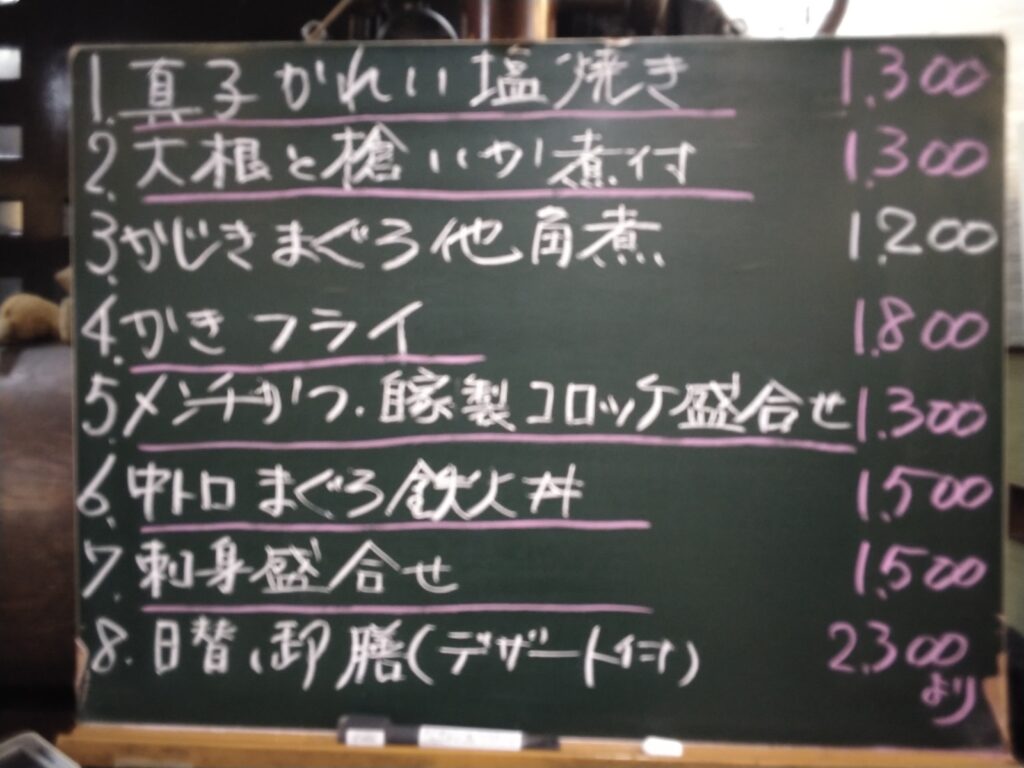 1. 真子かれい塩焼き 1.300
2. 大根と槍いか煮付 1.300
3. かじきまぐろ他角煮 1.200
4. かきフライ 1.800
5. メンチかつ.自家製コロッケ盛合せ 1.300
6. 中トロまぐろ鉄火丼 1.500
7. 刺身盛合せ 1.500
8. 日替、御膳(デザート付) 2.300
より